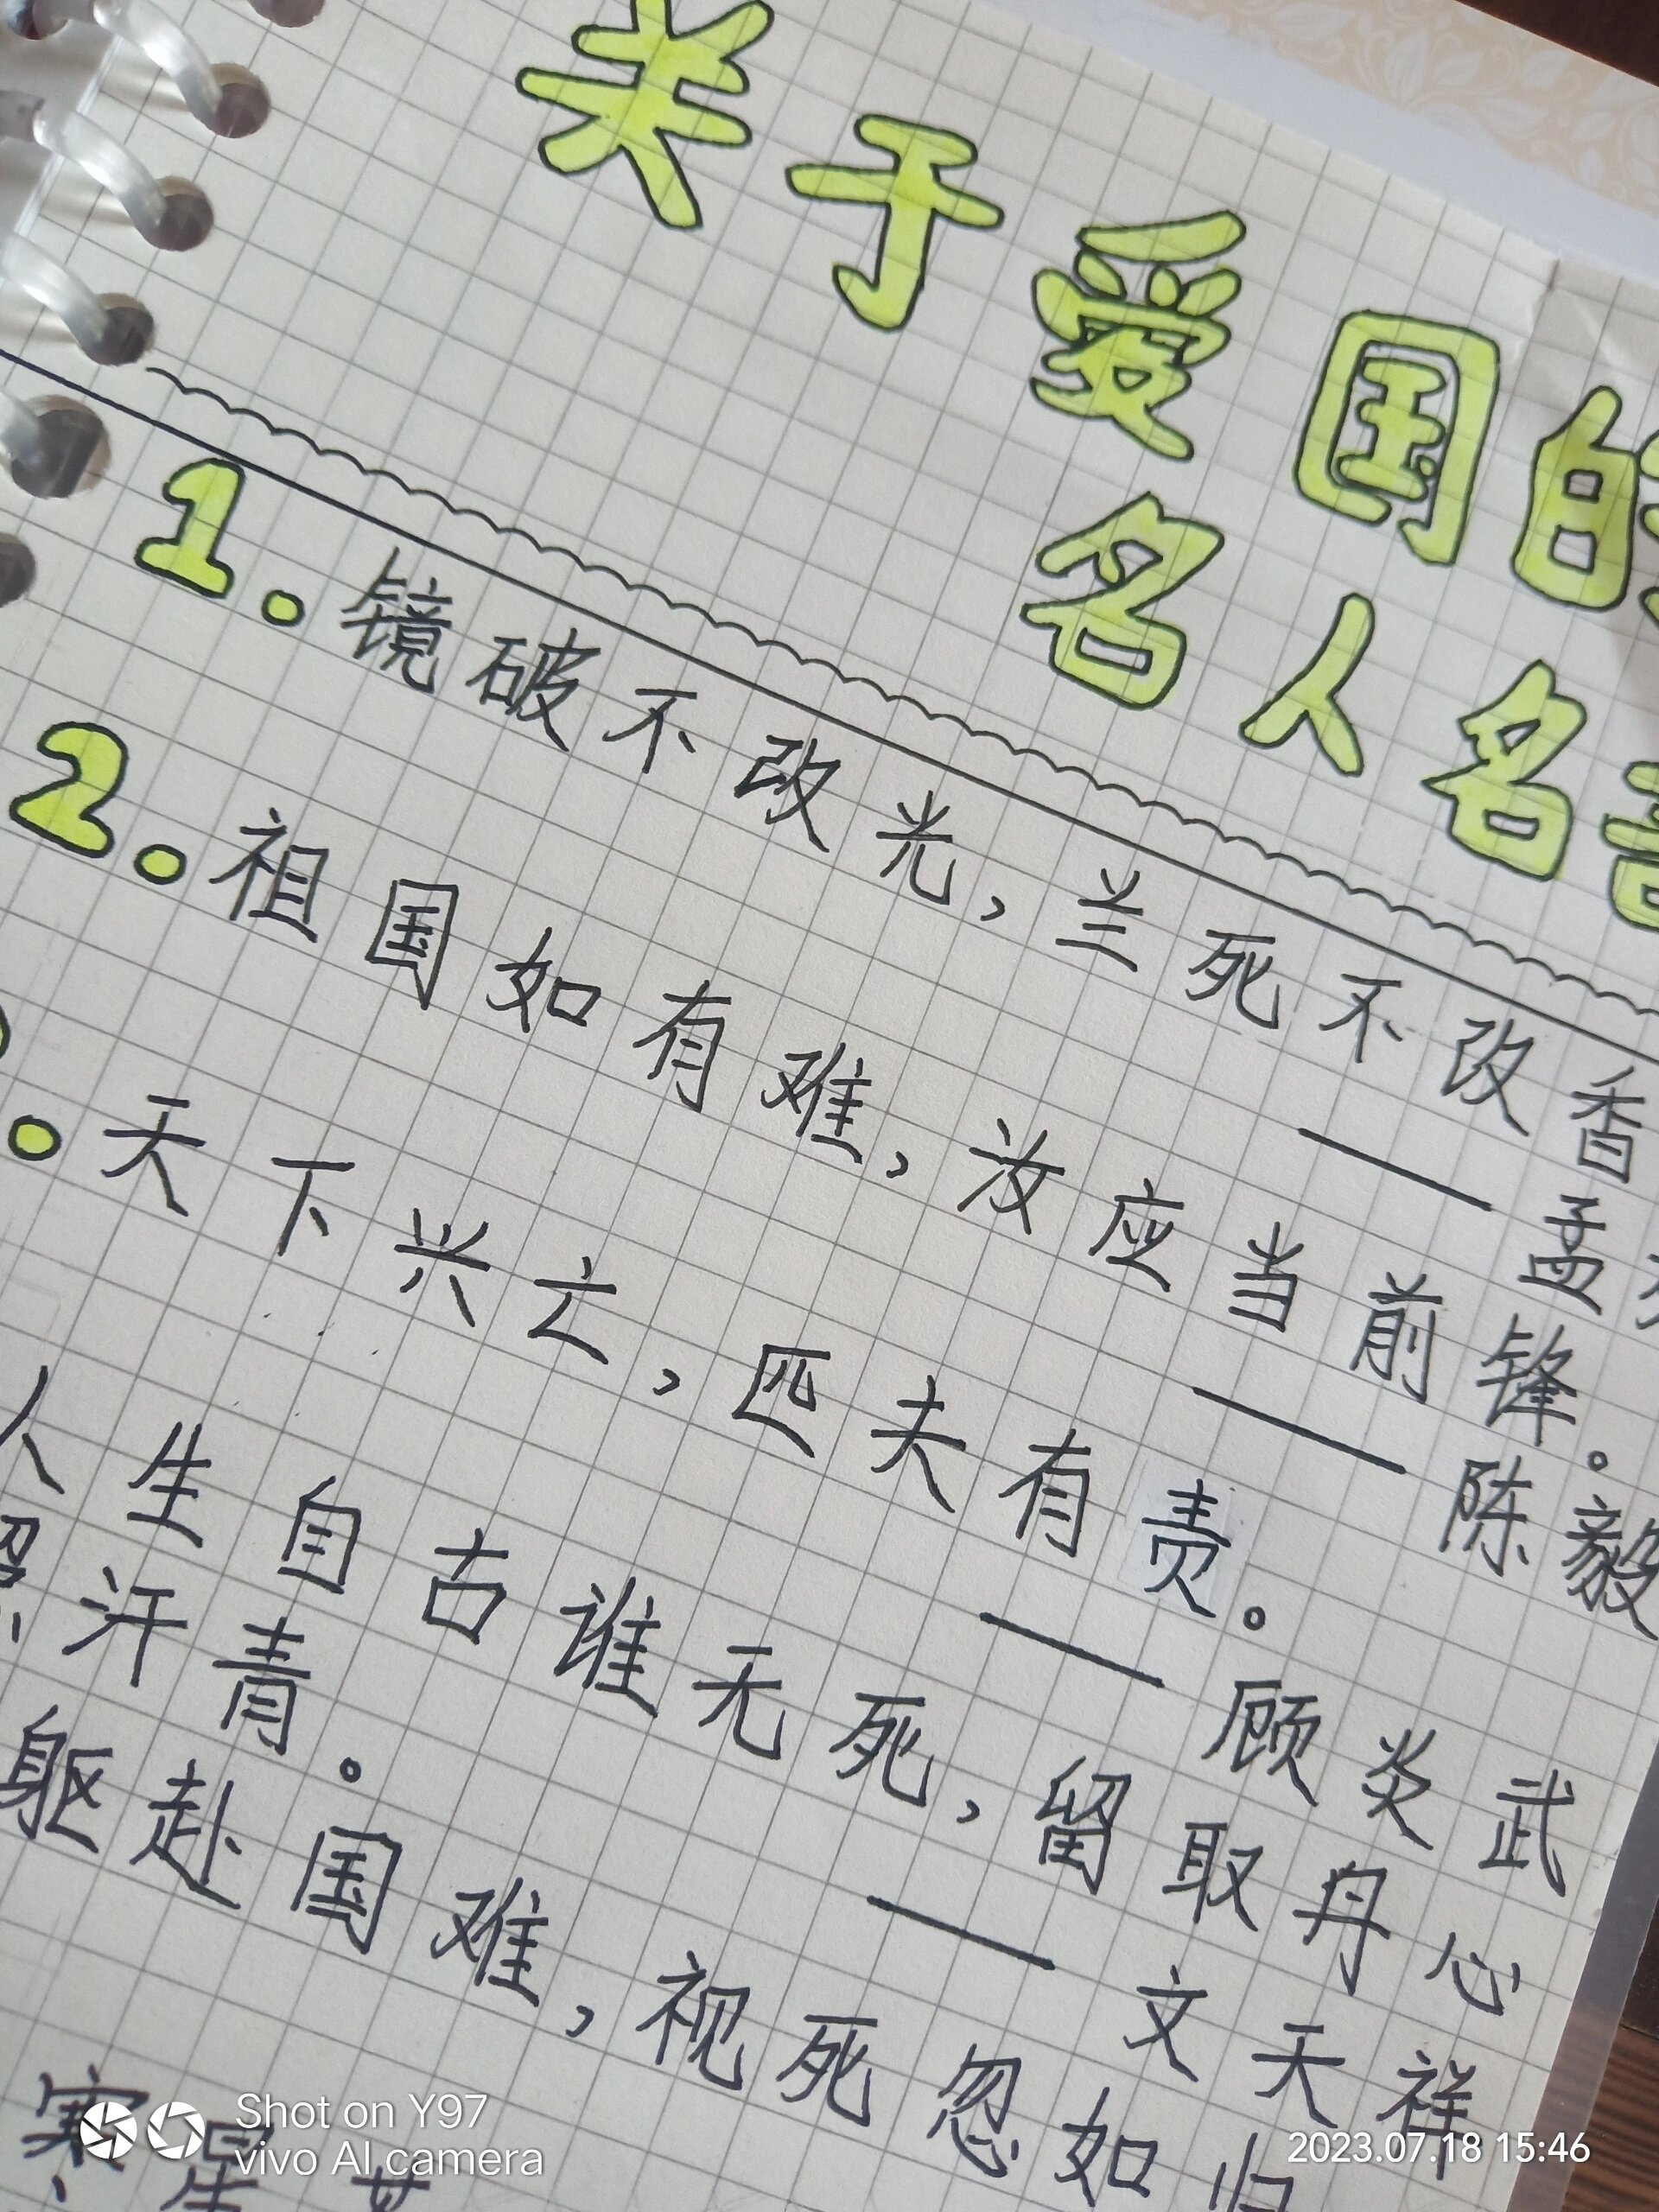 关于爱国的
名人名言
1.镜破不改光,兰死不改香
——孟郊
2.祖国如有难,汝应当前锋。
——陈毅
.天下兴亡,匹夫有责。
——顾炎武
人生自古谁无死,留取丹心
照汗青。
——文天祥
躯赴国难,视死忽如归
Shot on Y97
vivo AI camera
2023.07.18 15:46